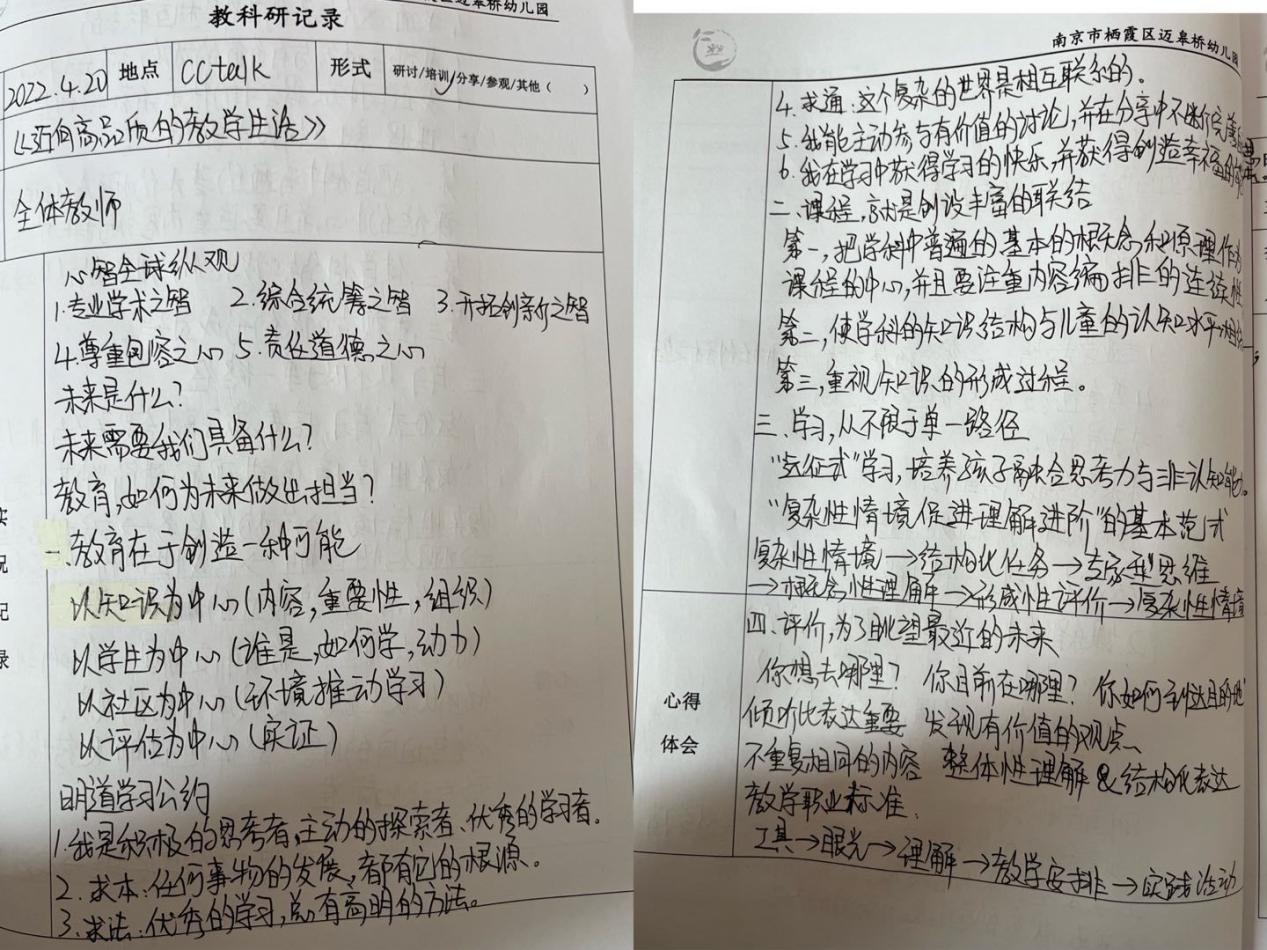 迈皋桥幼儿园
教科研记录
2022.4.20 地点 cctalk 形式 研讨/培训/分享/参观/其他( )
《迈向高品质的教学生活》
全体教师
心智全球纵观
1.专业学术之智 2.综合统筹之智 3.开拓创新之智
4.尊重包容之心 5.责任道德之心
未来是什么?
未来需要我们具备什么?
教育,如何为未来做出担当?
一.教育在于创造一种可能
以知识为中心(内容,重要性,组织)
以学生为中心(谁是,如何学,动力)
以社区为中心(环境推动学习)
以评估为中心(实证)
明道学习公约
1.我是积极的思考者,主动的探索者、优秀的学习者。
2.求本:任何事物的发展,都有它的根源。
3.求法:优秀的学习,总有高明的方法。
实
况
记
录
南京市栖霞区迈皋桥幼儿园
4.求通:这个复杂的世界是相互联系的。
5.我能主动参与有价值的讨论,并在分享中不断完善
6.我在学习中获得学习的快乐,并获得创造幸福的
二、课程,就是创设丰富的联结
第一,把学科中普遍的基本的概念和原理作为
课程的中心,并且要注重内容编排的连续性
第二,使学科的知识结构与儿童的认知水平相
第三,重视知识的形成过程。
三、学习,从不限于单一路径
"远征式"学习,培养孩子融合思考力与非认知能力。
"复杂性情境促进理解进阶"的基本范式
复杂性情境→结构化任务→专家型思维
→概念性理解→形成性评价→复杂性情境
四、评价,为了眺望最近的未来
你想去哪里? 你目前在哪里? 你如何到达目的地
倾听比表达重要 发现有价值的观点
不重复相同的内容 整体性理解&结构化表达
教学职业标准.
工具→眼光→理解→教学安排→实践活动
心得
体会